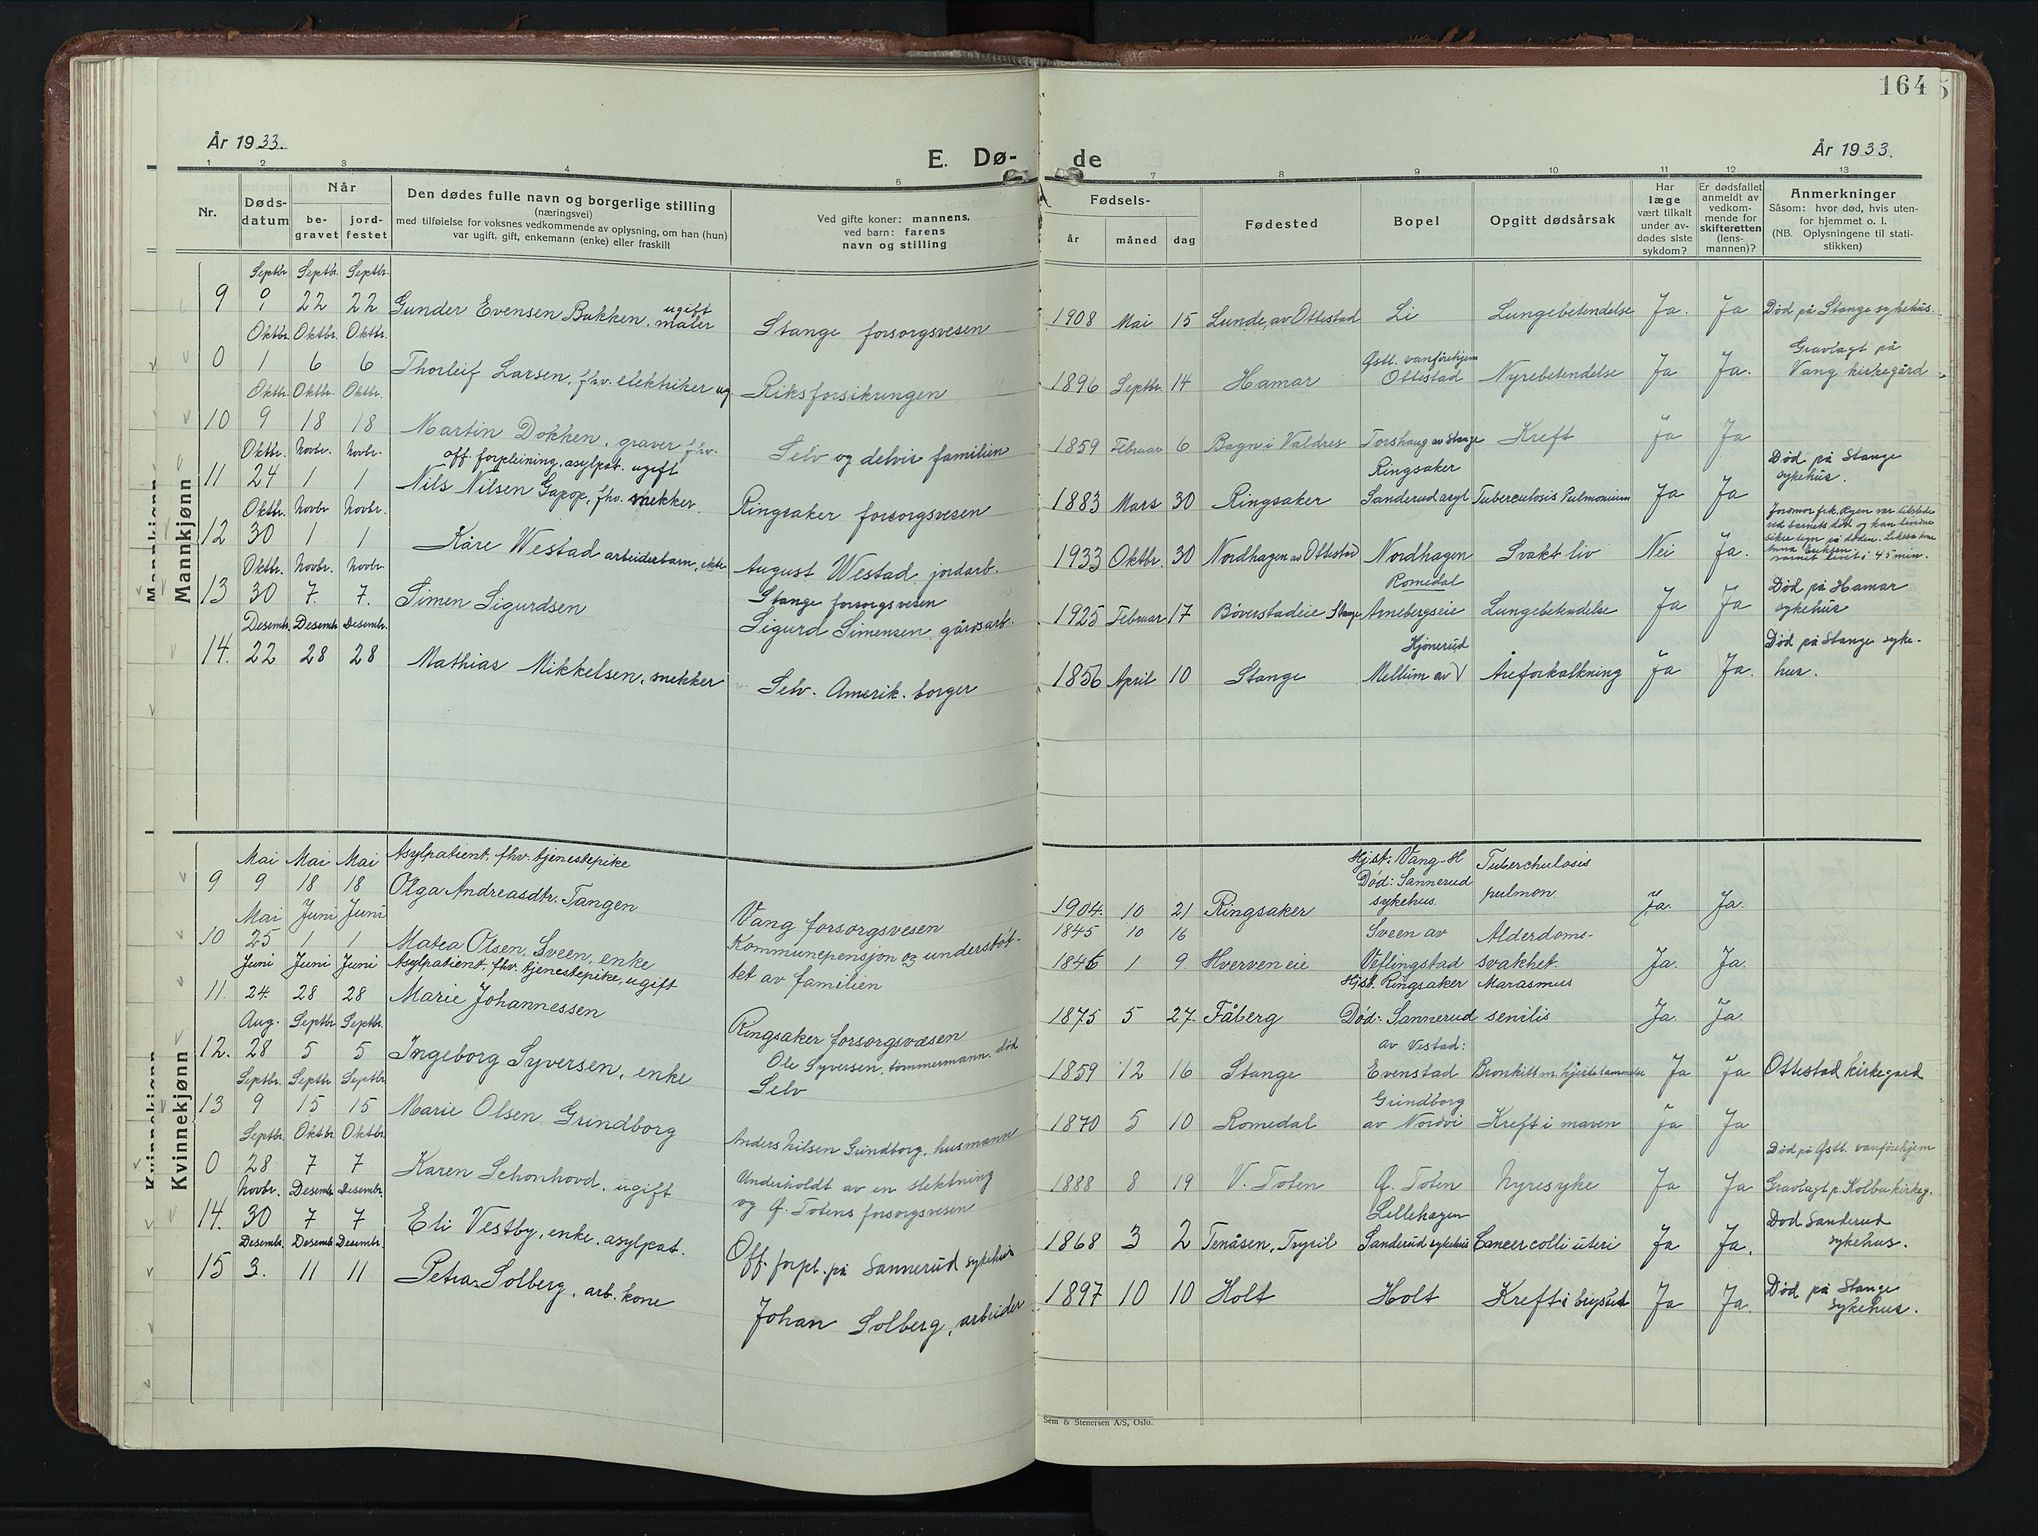 164
År 1933.
E. Dø-
de
År 1933.
1 2 3 4 5 7 8 9 10 11 12 13
Nr.
Døds-
datum
Når
be-
gravet
jord-
festet
Den dødes fulle navn og borgerlige stilling
(næringsvei)
med tilføielse for voksnes vedkommende av oplysning, om han (hun)
var ugift, gift, enkemann (enke) eller fraskilt
Ved gifte koner: mannens,
ved barn: farens
navn og stilling
Fødsels-
år
måned
dag
Fødested
Bopel
Opgitt dødsårsak
Har
læge
vært tilkalt
under av-
dødes siste
sykdom?
Er dødsfallet
anmeldt av
vedkom-
mende for
skifteretten
(lens-
mannen)?
Anmerkninger
Såsom: hvor død, hvis uten-
for hjemmet o. l.
(NB. Oplysningene til stati-
stikken)
Mannkjønn
Mannkjønn
Septbr. Septbr. Septbr.
9 9 22 22 Gunder Evensen Bakken, ugift maler Stange forsorgsvesen 1908 Mai 15 Lunde, av Ottestad Li Lungebetendelse Ja. Ja Død på Stange sykehus.
Oktbr. Oktbr. Oktbr.
0 1 6 6 Thorleif Larsen, fhv. elektriker ug. Riksforsikringen 1896 Septbr. 14 Hamar Østl. vanførehjem Ottestad Nyrebetendelse Ja Ja. Gravlagt på Vang kirkegård
Oktbr. Oktbr. Oktbr.
10 9 18 18 Martin Dokken, graver fhv. Selv og delvis familien 1859 Februar 6 Bagn i Valdres Torshaug av Stange Kreft Ja Ja
Oktbr. Novbr. Novbr. off. forpleining, asylpat. ugift
11 24 1 1 Nils Nilsen Gapop, fhv. snekker. Ringsaker forsorgsvesen 1883 Mars 30 Ringsaker Ringsaker Sanderud asyl Tuberculosis Pulmonium Ja Ja Død på Stange sykehus.
Oktbr. Novbr Novbr.
12 30 1 1 Kåre Westad arbeiderbarn, ekte August Westad, jordarb. 1933 Oktbr. 30 Nordhagen av Ottestad Nordhagen Svakt liv Nei Ja. Jordmor frk. Ryen var tilstede ved barnets død og kan
sikre tegn på døden.
barnet levet i 45 min.
Oktbr. Novbr. Novbr
13 30 7. 7. Simen Sigurdsen Stange forsorgsvesen Sigurd Simensen, gårdsarb. 1925 Februar 17 Bøverstadeie Stange Romedal Arnebergseie Lungebetendelse Ja Ja Død på Hamar sykehus
Desembr. Desembr. Desembr.
14. 22 28 28 Mathias Mikkelsen, snekker Selv. Amerik. borger 1856 April 10 Stange Hjønerud Mellum av Åreforkalkning Ja Ja. Død på Stange syke-
hus.
Kvinnekjønn
Kvinnekjønn
Mai Mai Mai Asylpatient, fhv. tjenestepike
9 9 18 18 Olga Andreasdtr. Tangen Vang forsorgsvesen 1904. 10 21 Ringsaker Hjst: Vang-H Død: Sannerud sykehus. Tuberchulosis pulmon. Ja. Ja.
Mai Juni Juni 1845 10 16
10 25 1 1 Matea Olsen, Sveen, enke Kommunepensjon og understøt-
tet av familien 1846 1 9. Hverven eie Sveen av Veflingstad Alderdoms-
svakhet. Ja. Ja.
Juni Juni Juni Asylpatient, fhv. tjenestepike, ugift
11. 24. 28 28 Marie Johannessen Ringsaker forsorgsvæsen 1875 5 27. Fåberg Hjst. Ringsaker Død: Sannerud Marasmus senilis Ja. Ja.
Aug. Septbr. Septbr.
12. 28 5 5 Ingeborg Syversen, enke Ole Syversen, tømmermann, død Selv 1859 12 16 Stange av Vestad: Evenstad Bronkitt m. hjertelammelse Ja Ja Ottestad kirkegård
Septbr. Septbr. Septbr.
13 9 15 15 Marie Olsen Grindborg Anders Nilsen Grindborg, husmann 1870 5 10 Romedal Grindborg av Nordvi Kreft i maven Ja Ja
Septbr. Oktbr. Oktbr.
0 28 7 7 Karen Schonhovd, ugift Underholdt av en slektning
og Ø. Totens forsorgsvesen 1888 8 19 V. Toten Ø. Toten Nyresyke Ja Ja Død på Østl. vanførehjem
Gravlagt p. Kolbu kirkeg.
Novbr. Desembr. Desembr.
14. 30 7 7 Eli Vestby, enke, asylpat. Off. forpl. på Sannerud sykehus 1868 3 2 Tenåsen, Trysil Lillehagen Sanderud sykehus Cancer colli uteri Ja Ja. Død Sanderud sykehus.
Desembr. Desembr. Desembr.
15 3. 11 11 Petra Solberg, arb. kone Johan Solberg, arbeider 1897 10 10 Holt Holt Kreft i brystet Ja Ja. Død på Stange sykehus.
Sem & Stenersen A/S, Oslo.